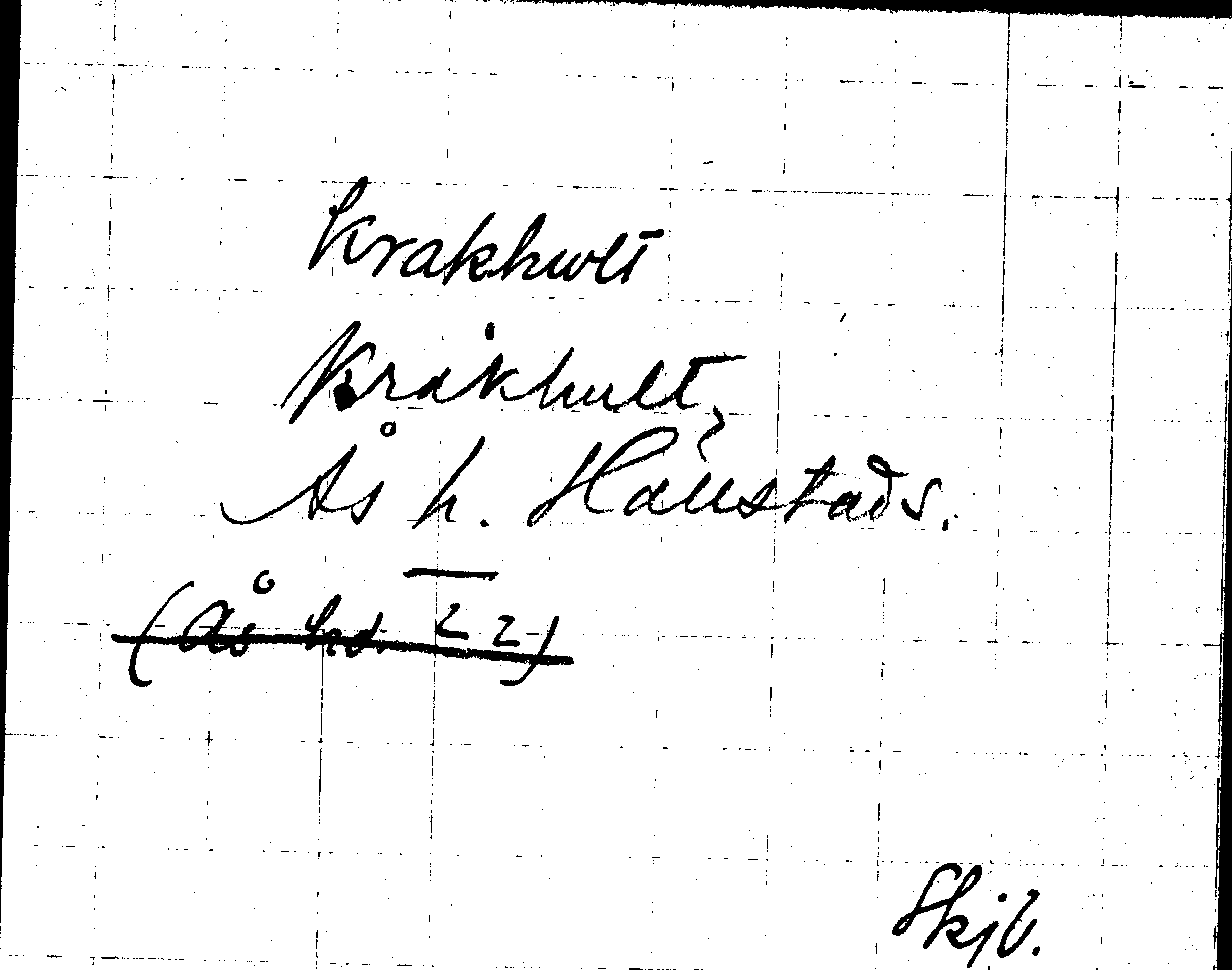 Krakhult
Kråkhult,
Ås h. Hånstads.
(Ås hd. 22)
Skjb.